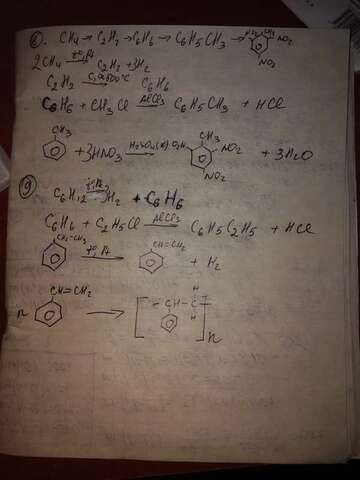 CH₄ → C₂H₂ → C₆H₆ → C₆H₅CH₃ → CH₃ NO₂ NO₂
2CH₄ t°, Pt C₂H₂ + 3H₂
C₂H₂ C, 500°C C₆H₆
C₆H₆ + CH₃Cl AlCl₃ → C₆H₅CH₃ + HCl
CH₃ + 3HNO₃ H₂SO₄(к) → O₂N CH₃ NO₂ NO₂ + 3H₂O
C₆H₁₂ H₂ + C₆H₆
C₆H₆ + C₂H₅Cl AlCl₃ → C₆H₅C₂H₅ + HCl
CH₂-CH₃ t°, Pt → CH=CH₂ + H₂
n CH=CH₂ → [-CH-C-]n H H